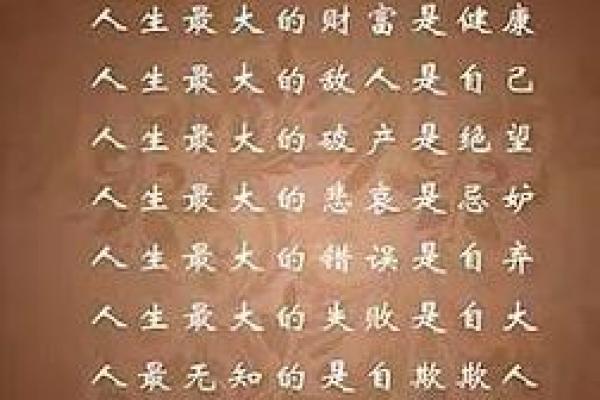 人生最大的财富是健康
人生最大的敌人是自己
人生最大的破产是绝望
人生最大的悲哀是忌妒
人生最大的错误是自弃
人生最大的失败是自大
人最无知的是自欺欺人